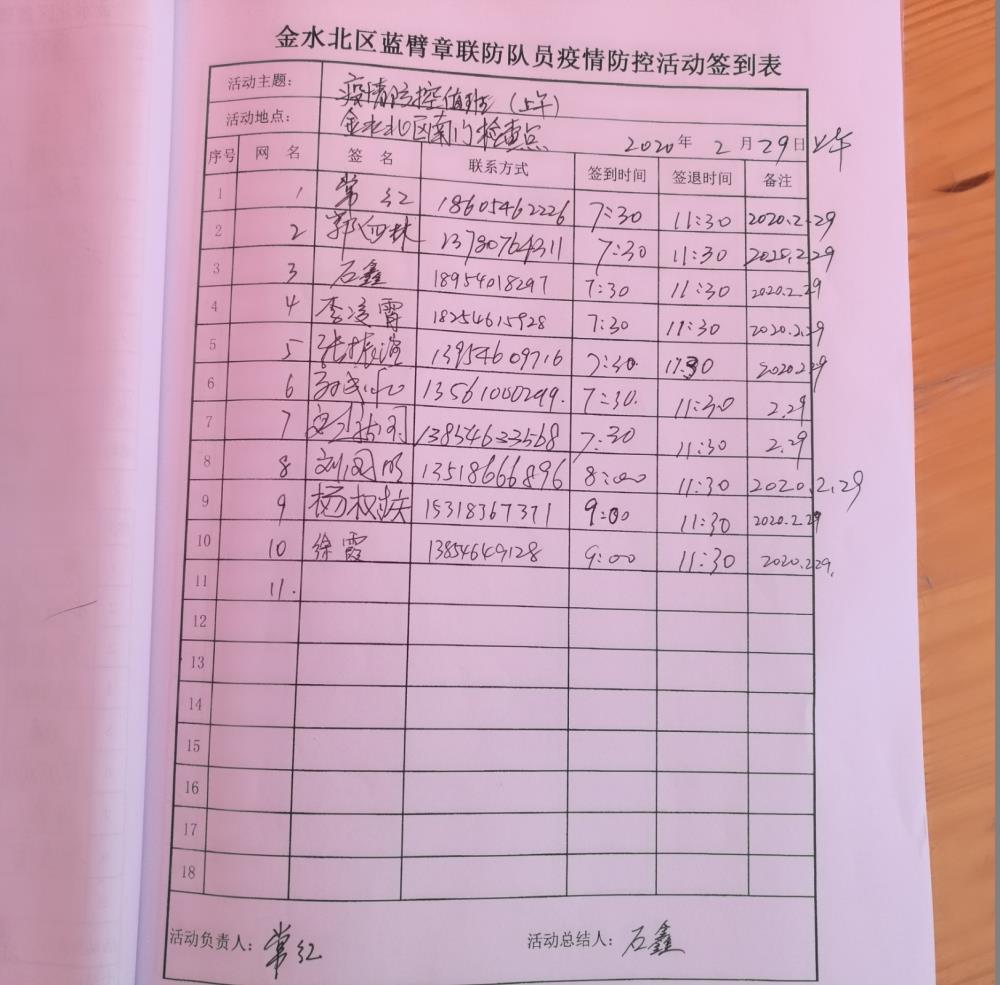 金水北区蓝臂章联防队员疫情防控活动签到表
活动主题： 疫情防控值班（上午）
活动地点： 金水北区南门检查点 2020年 2月29日 上午
序号 网名 签名 联系方式 签到时间 签退时间 备注
1 1 常红 18605462226 7:30 11:30 2020.2.29
2 2 郭 林 13780764311 7:30 11:30 2020.2.29
3 3 石鑫 18954018297 7:30 11:30 2020.2.29
4 4 李凌霄 18254615928 7:30 11:30 2020.2.29
5 5 张振 13954609716 7:30 11:30 2020.2.29
6 6 13561000299. 7:30. 11:30 2.29
7 7 13854633568 7:30 11:30 2.29
8 8 刘国明 13518666896 8:00 11:30 2020.2.29
9 9 杨 15318367371 9:00 11:30 2020.2.29
10 10 徐霞 13854649128 9:00 11:30 2020.2.29.
11 11.
12
13
14
15
16
17
18
活动负责人：常红 活动总结人：石鑫